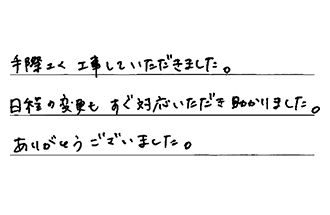 手際よく工事していただきました。
日程の変更もすぐ対応いただき助かりました。
ありがとうございました。